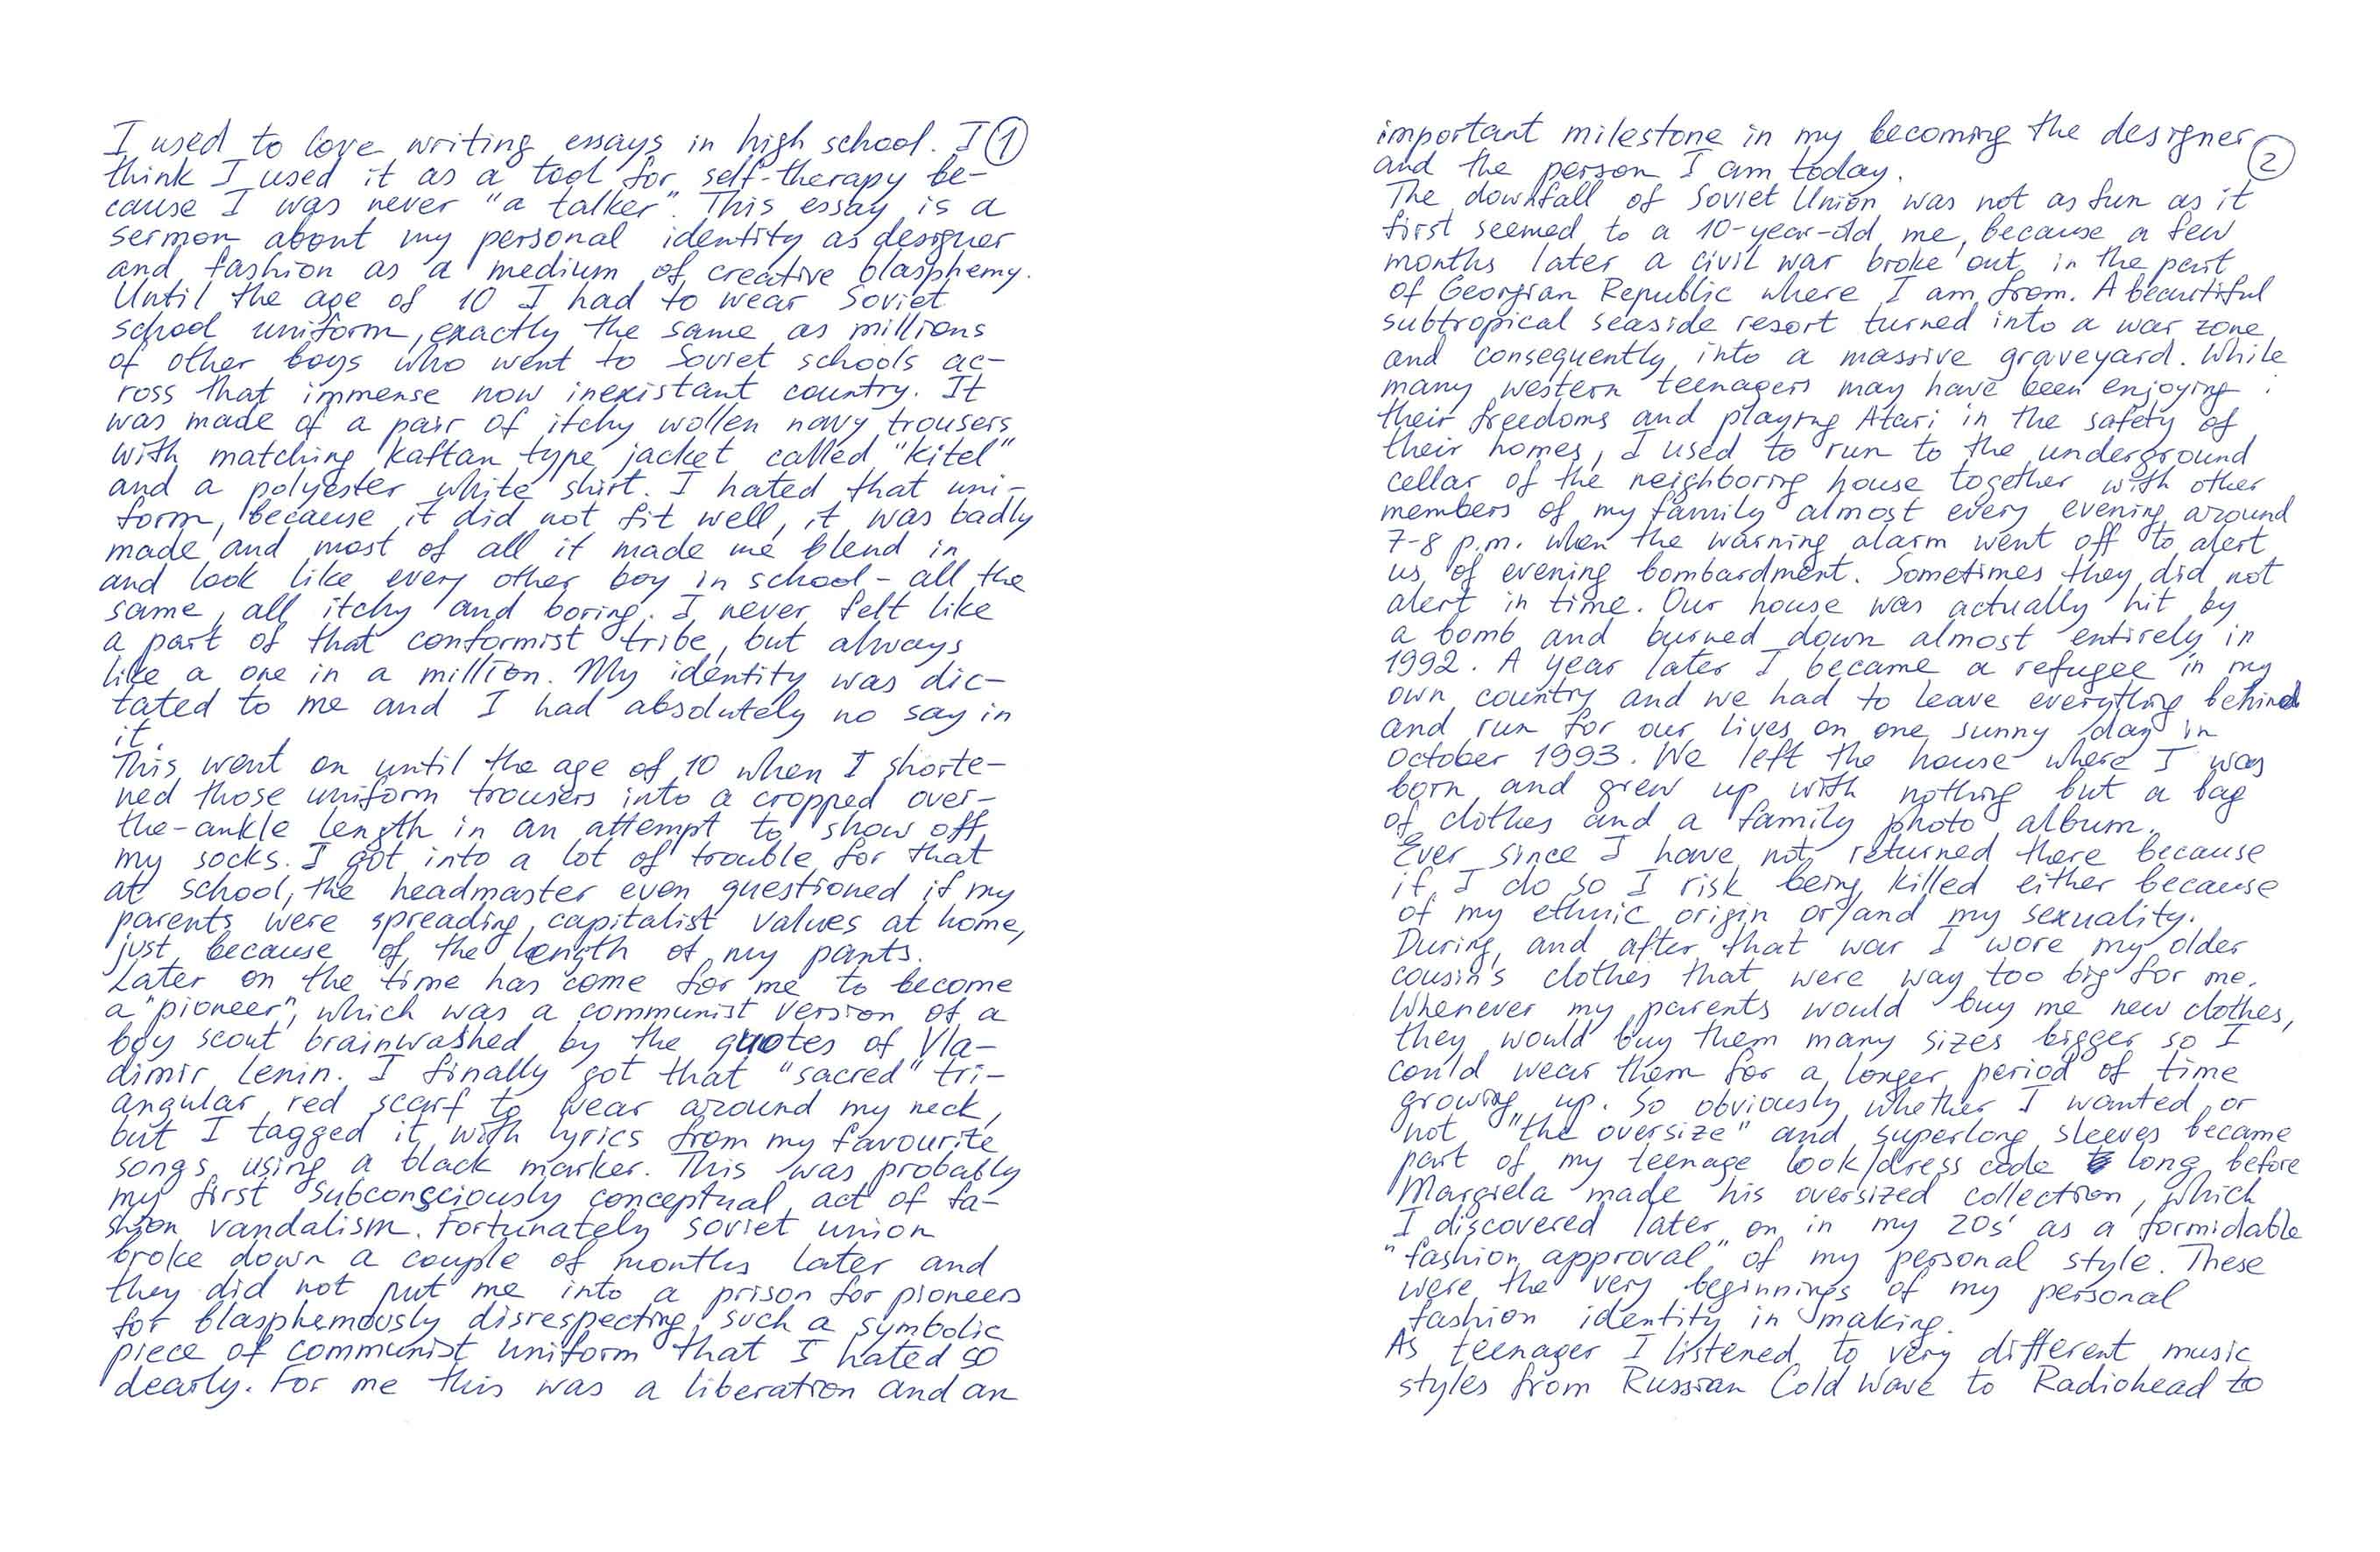 I used to love writing essays in high school. I ①
think I used it as a tool for self-therapy be-
cause I was never "a talker". This essay is a
sermon about my personal identity as designer
and fashion as a medium of creative blasphemy.
Until the age of 10 I had to wear Soviet
school uniform, exactly the same as millions
of other boys who went to Soviet schools ac-
ross that immense now inexistant country. It
was made of a pair of itchy wollen navy trousers
with matching kaftan type jacket called "kitel"
and a polyester white shirt. I hated that uni-
form, because it did not fit well, it was badly
made and most of all it made me blend in
and look like every other boy in school - all the
same, all itchy and boring. I never felt like
a part of that conformist tribe, but always
like a one in a million. My identity was dic-
tated to me and I had absolutely no say in
it.
This went on until the age of 10 when I shorte-
ned those uniform trousers into a cropped over-
the-ankle length in an attempt to show off
my socks. I got into a lot of trouble for that
at school, the headmaster even questioned if my
parents were spreading capitalist values at home,
just because of the length of my pants.
Later on the time has come for me to become
a "pioneer", which was a communist version of a
boy scout brainwashed by the quotes of Vla-
dimir Lenin. I finally got that "sacred" tri-
angular red scarf to wear around my neck,
but I tagged it with lyrics from my favourite
songs using a black marker. This was probably
my first subconsciously conceptual act of fa-
shion vandalism. Fortunately soviet union
broke down a couple of months later and
they did not put me into a prison for pioneers
for blasphemously disrespecting such a symbolic
piece of communist uniform that I hated so
dearly. For me this was a liberation and an
important milestone in my becoming the designer ②
and the person I am today.
The downfall of Soviet Union was not as fun as it
first seemed to a 10-year-old me, because a few
months later a civil war broke out in the part
of Georgian Republic where I am from. A beautiful
subtropical seaside resort turned into a war zone
and consequently into a massive graveyard. While
many western teenagers may have been enjoying
their freedoms and playing Atari in the safety of
their homes, I used to run to the underground
cellar of the neighboring house together with other
members of my family almost every evening around
7-8 p.m. when the warning alarm went off to alert
us of evening bombardment. Sometimes they did not
alert in time. Our house was actually hit by
a bomb and burned down almost entirely in
1992. A year later I became a refugee in my
own country and we had to leave everything behind
and run for our lives on one sunny day in
October 1993. We left the house where I was
born and grew up with nothing but a bag
of clothes and a family photo album.
Ever since I have not returned there because
if I do so I risk being killed either because
of my ethnic origin or/and my sexuality.
During and after that war I wore my older
cousin's clothes that were way too big for me.
Whenever my parents would buy me new clothes,
they would buy them many sizes bigger so I
could wear them for a longer period of time
growing up. So obviously whether I wanted or
not "the oversize" and superlong sleeves became
part of my teenage look/dress code long before
Margiela made his oversized collection, which
I discovered later on in my 20s' as a formidable
"fashion approval" of my personal style. These
were the very beginnings of my personal
fashion identity in making.
As teenager I listened to very different music
styles from Russian Cold Wave to Radiohead to